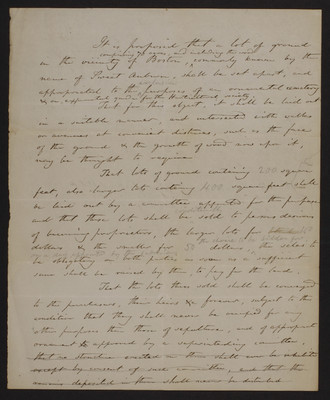 It is proposed that a lot of ground
comprising acres, and including the wood
in the vicinity of Boston, commonly known by the
name of Sweet Auburn, shall be set apart, and
appropriated to the purposes of an ornamental cemetery
& an experimental garden for the Horticultural society.
That for this object, it shall be laid out
in a suitable manner, and intersected with walks
or avenues at convenient distances, such as the face
of the ground & the growth of wood now upon it,
may be thought to require.
That lots of ground containing 200 square
feet, also larger lots containing 400 square feet shall
be laid out by a committee appointed for the purpose
and that these lots shall be sold to persons desirous
of becoming proprietors, the larger lots for
dollars & the smaller for 50 dollars, the sales to
be obligatory on both parties as soon as a sufficient
sum shall be raised by them, to pay for the land.
That the lots thus sold shall be conveyed
to the purchasers, their heirs &c forever, subject to the
condition that they shall never be occupied for any
other purpose than those of sepulture, and of appropriate
ornament to approved by a superintending committee,
that no structure erected on them shall ever be inhabited
except by consent of such committee, and that the
remains deposited in them shall never be disturbed